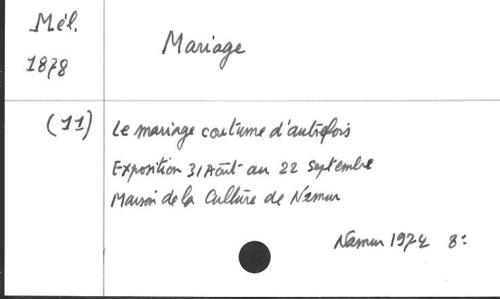 Mél.
1878
Mariage
(11)
Le mariage coutume d'autrefois
Exposition 31 Août au 22 Septembre
Maison de la Culture de Namur
Namur 1974 8º